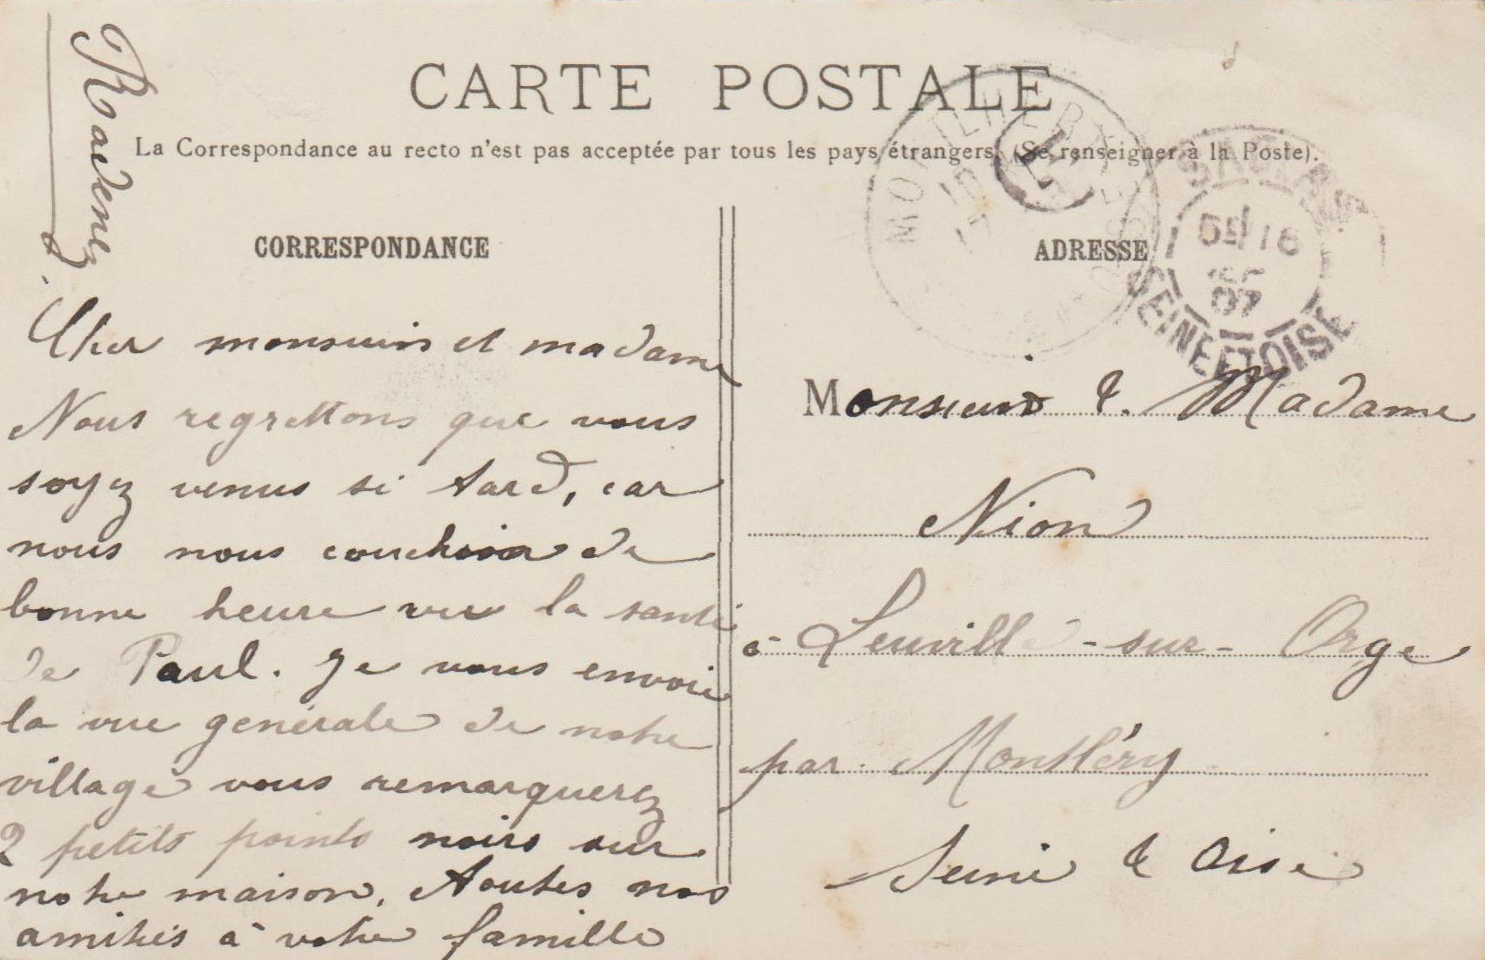 Radenez
CARTE POSTALE
La Correspondance au recto n'est pas acceptée par tous les pays étrangers. (Se renseigner à la Poste).
CORRESPONDANCE
Cher monsieur et madame
Nous regrettons que vous
soyez venus si tard, car
nous nous couchion de
bonne heure vu la santé
de Paul. Je vous envoie
la vue générale de notre
village vous remarquerez
2 petits points noirs sur
notre maison. Toutes nos
amitiés à votre famille
ADRESSE
Monsieur & Madame
Nion
à Leuville-sur-Orge
par Montlhéry
Seine & Oise
MONTLHERY
SEINE ET OISE
07